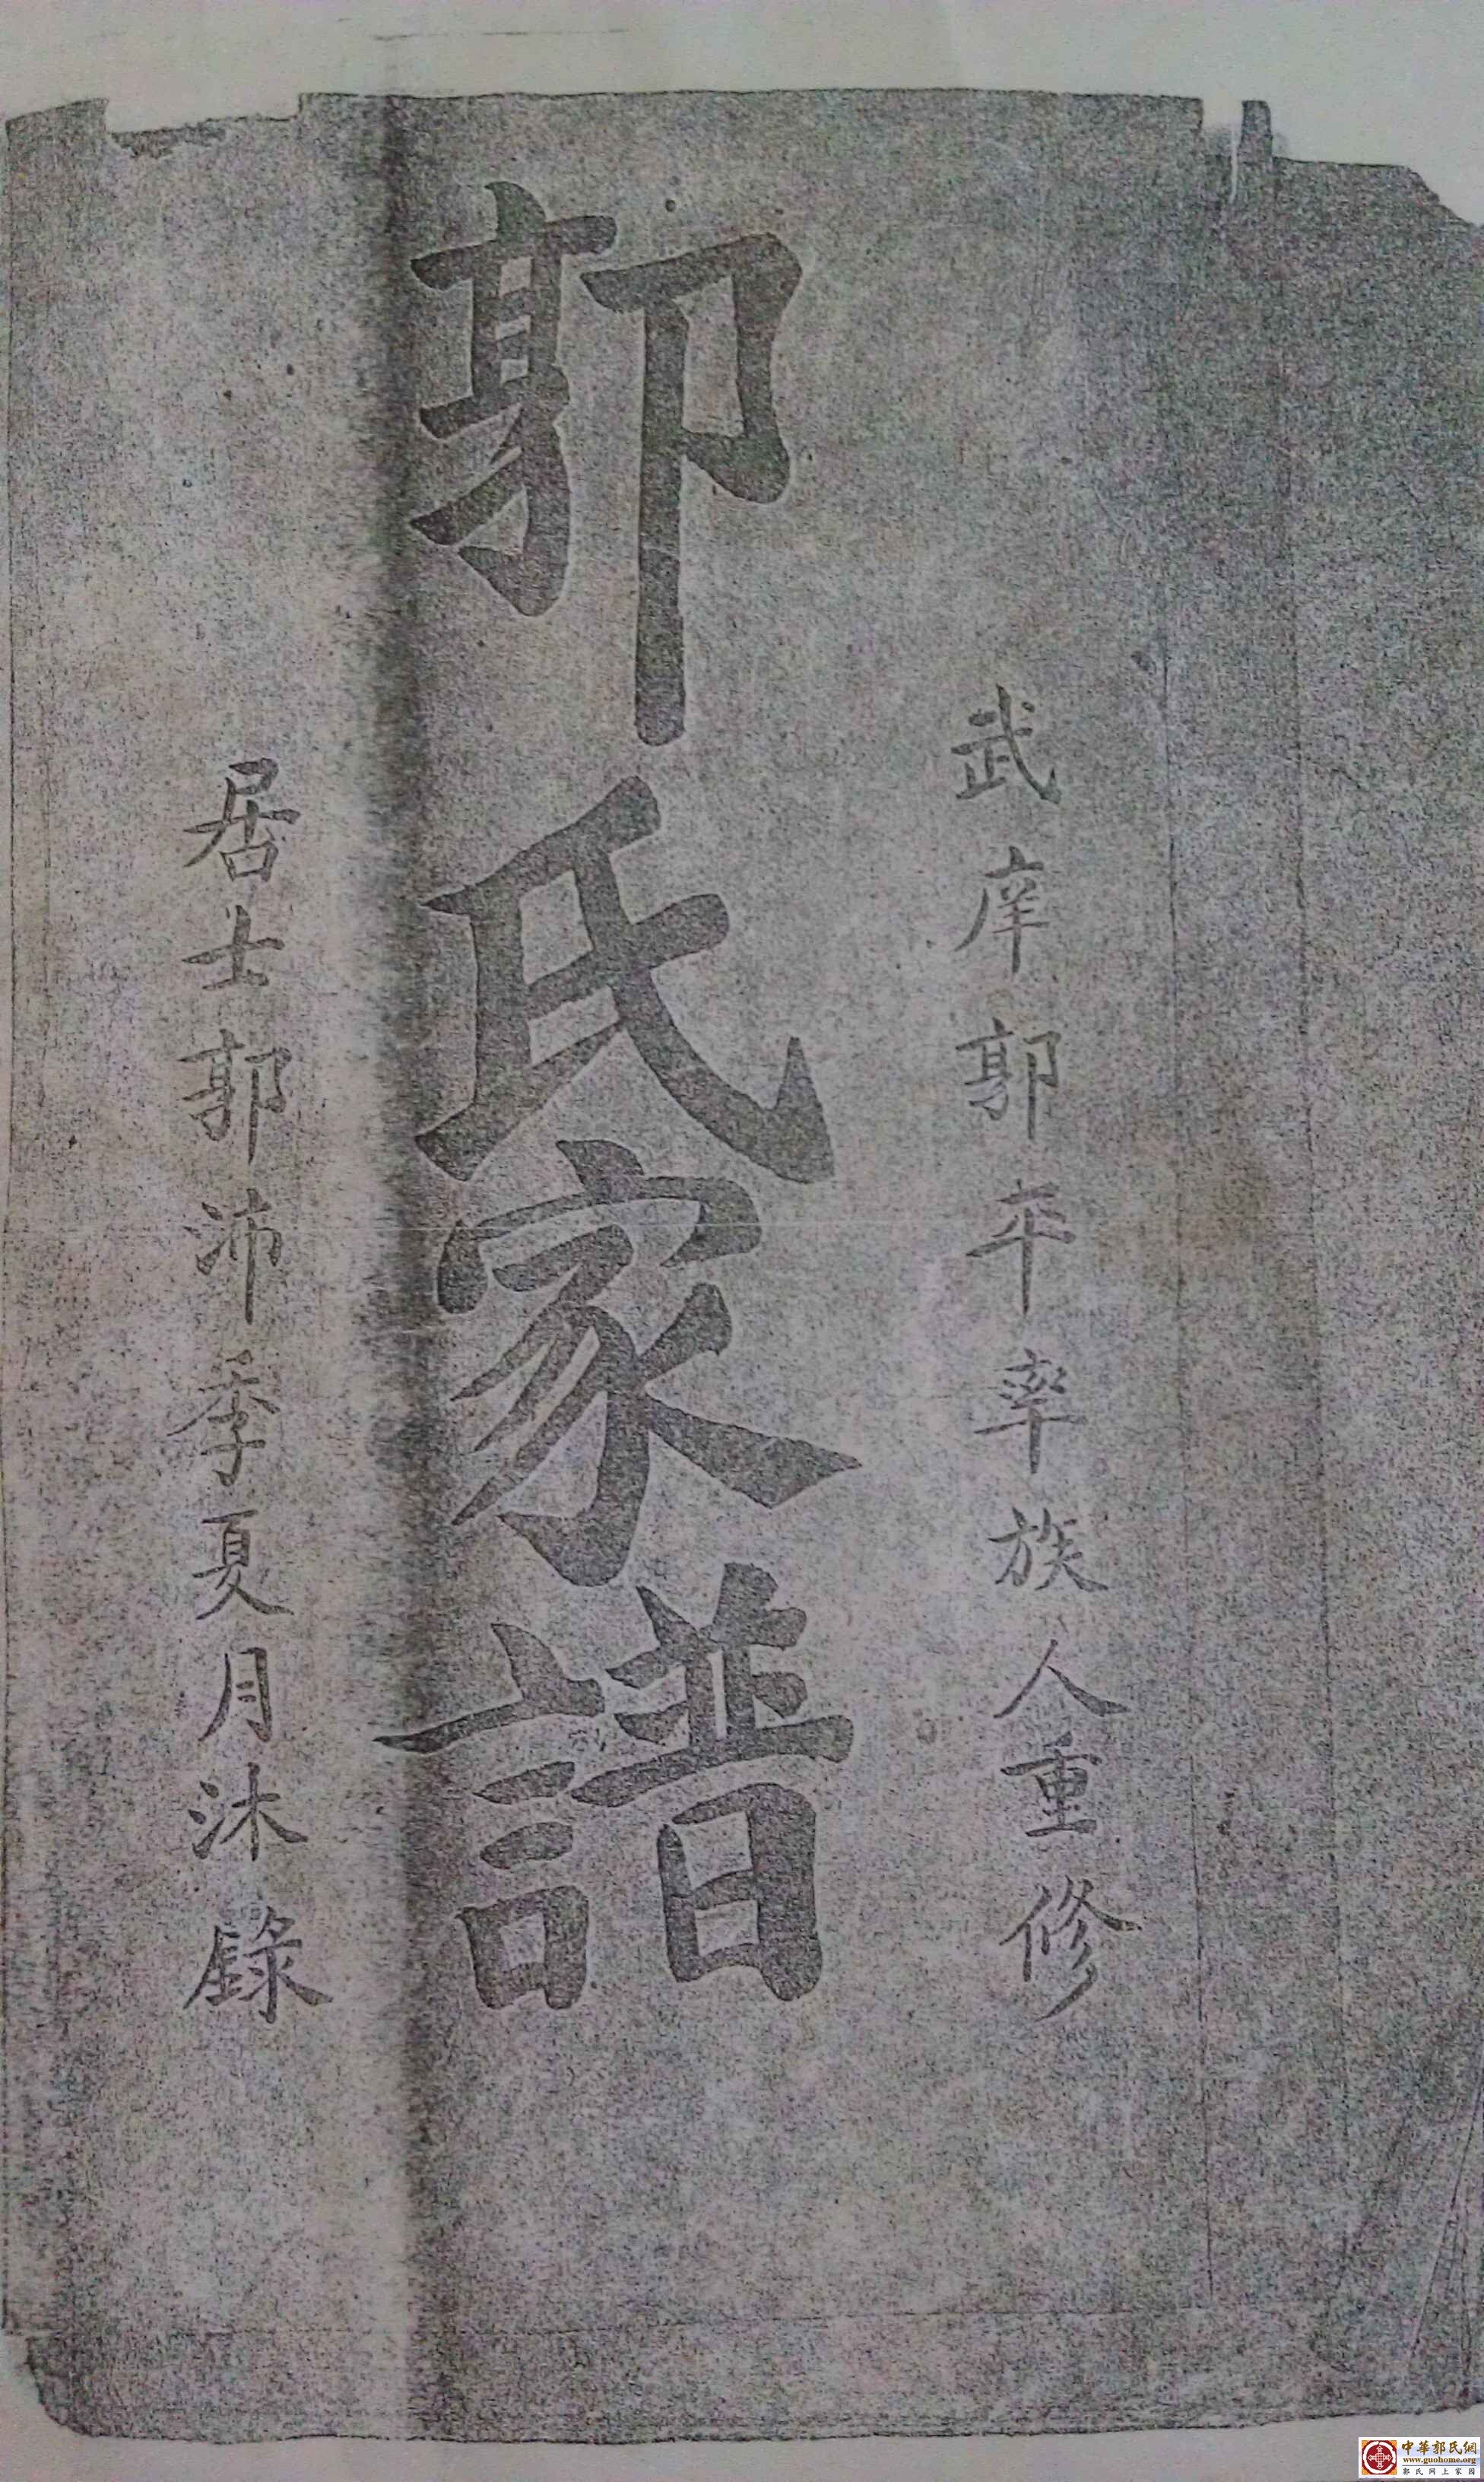 武庠郭卒率族人重修
郭氏家譜
居士郭沛季夏月沐錄
中華郭氏網
www.guohome.org
郭氏网上家园